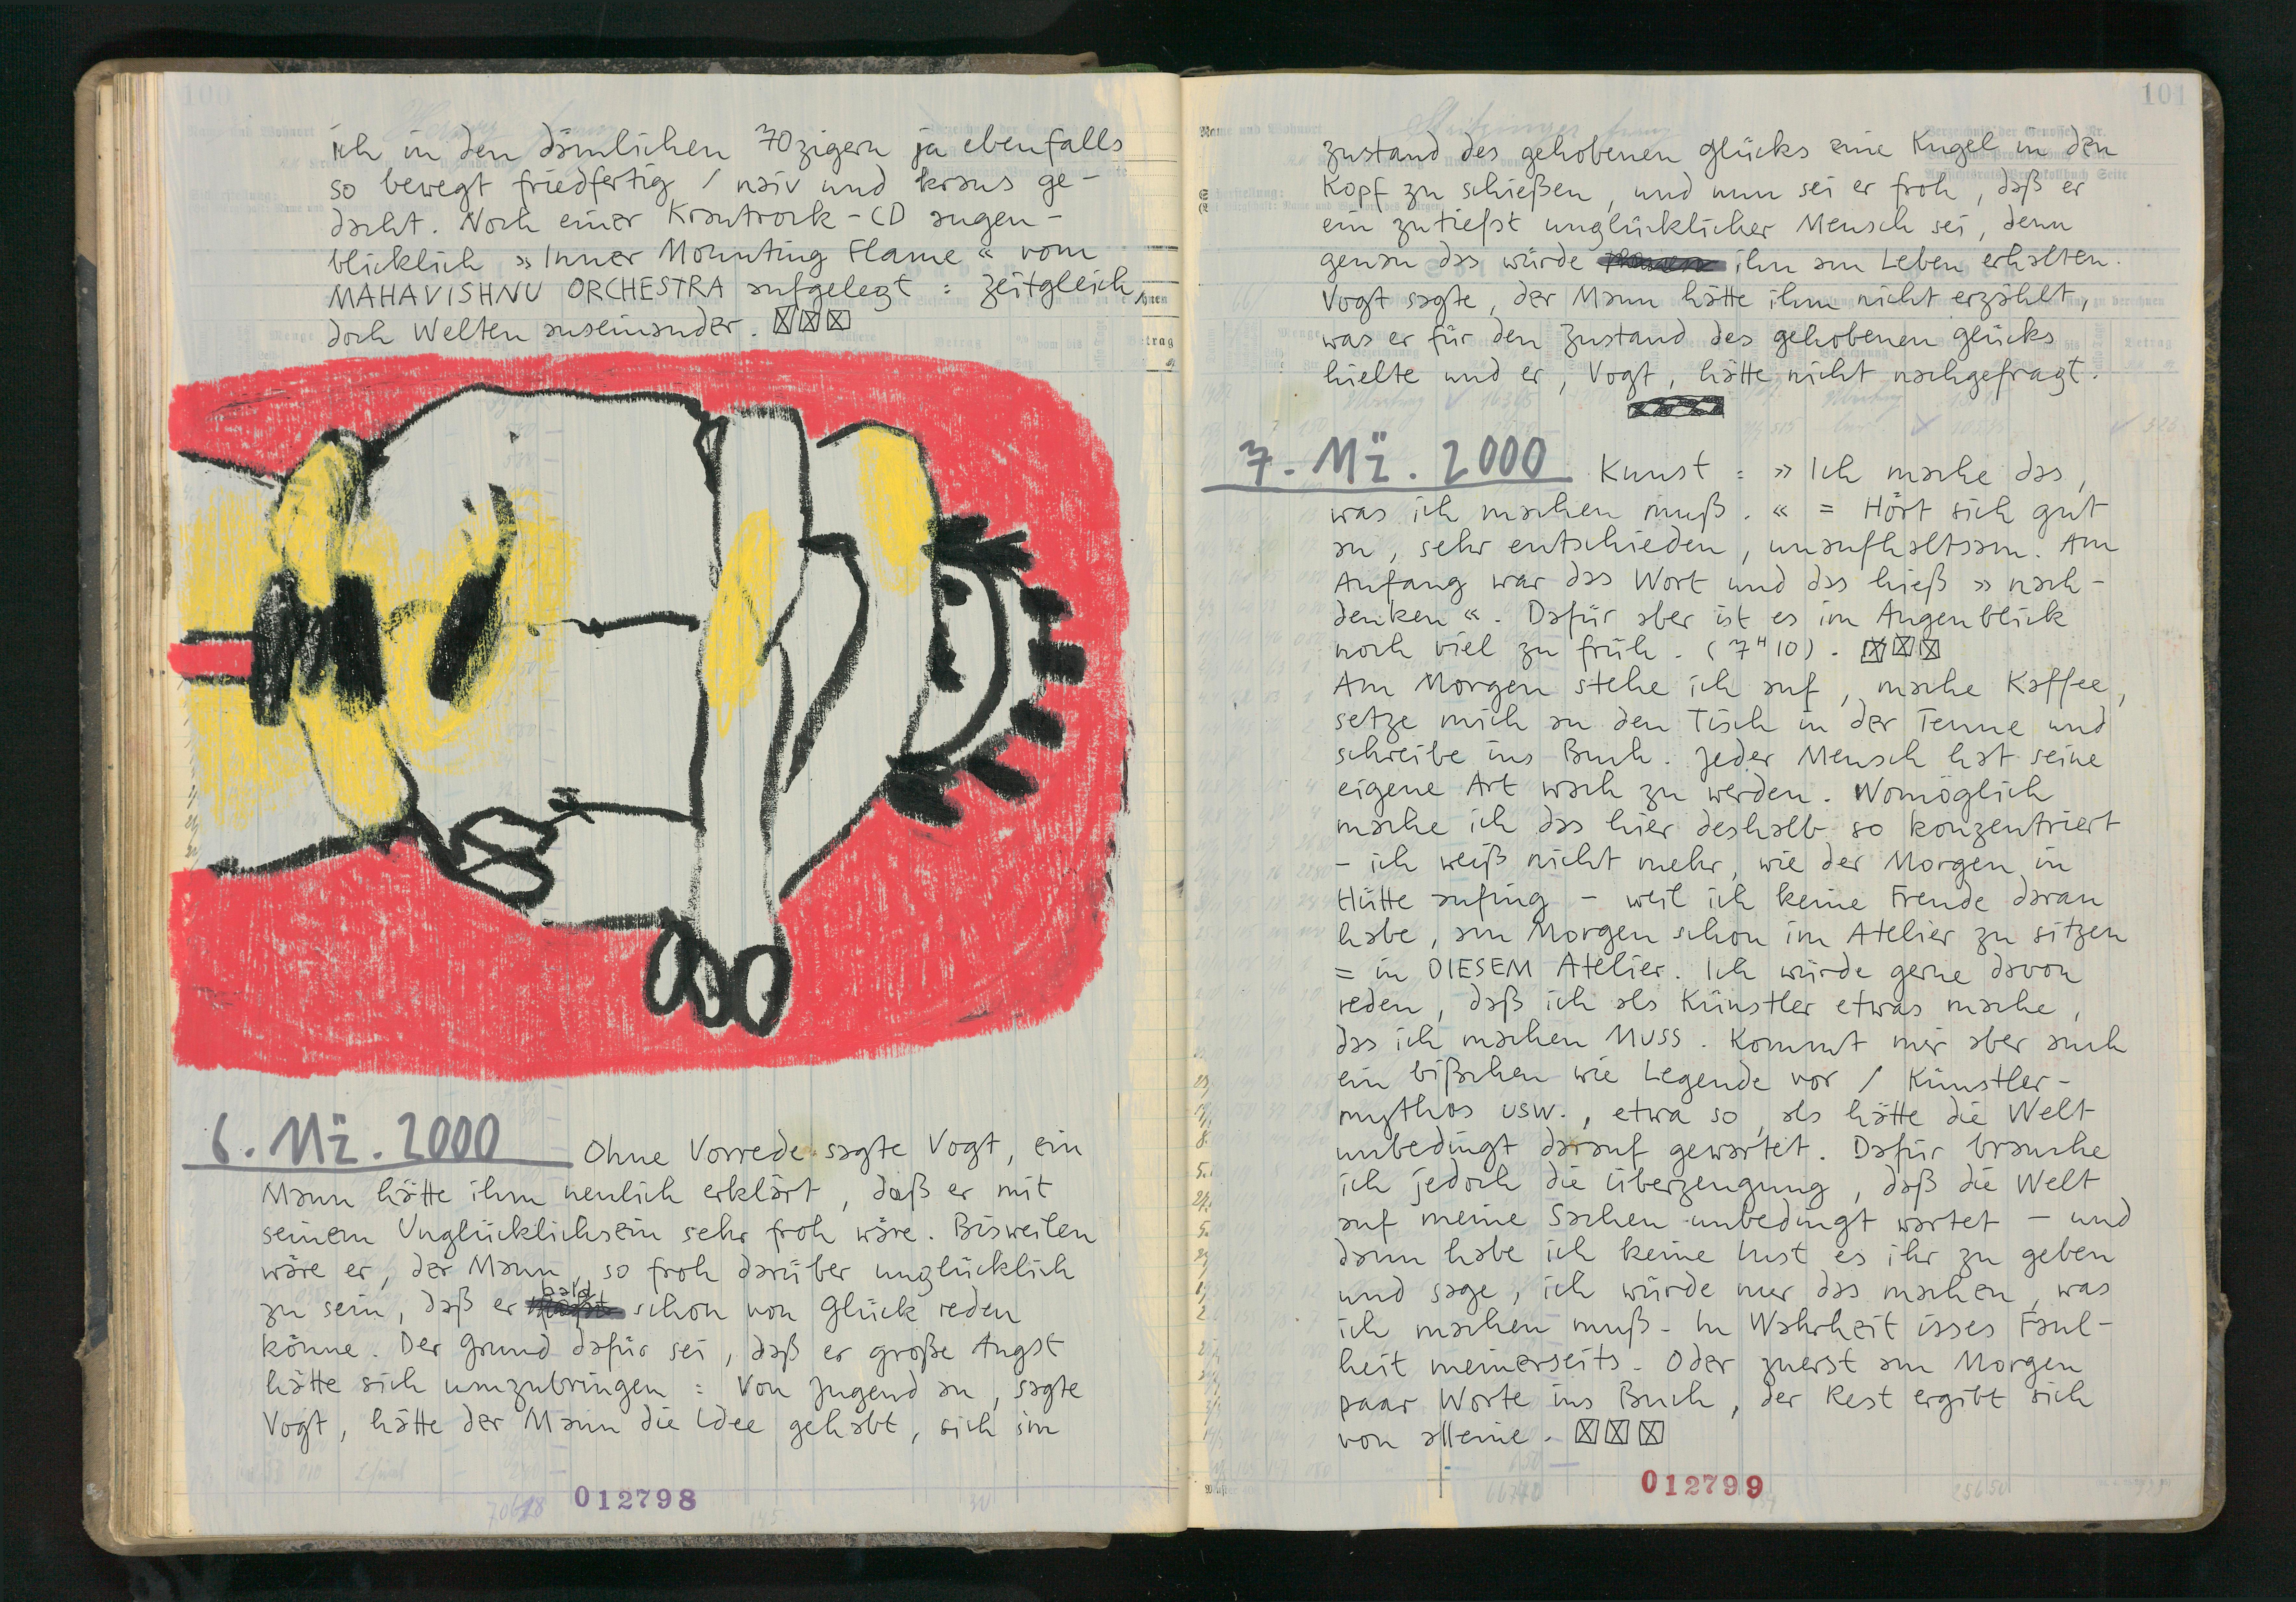 ich in den dämlichen 70zigern ja ebenfalls
so bewegt friedfertig / naiv und kraus ge-
dacht. Nach einer Krautrock-CD augen-
blicklich »Inner Mounting Flame« vom
MAHAVISHNU ORCHESTRA aufgelegt : zeitgleich,
doch Welten auseinander.
6. Mä. 2000 Ohne Vorrede sagte Vogt, ein
Mann hätte ihm neulich erklärt, daß er mit
seinem Unglücklichsein sehr froh wäre. Bisweilen
wäre er, der Mann, so froh darüber unglücklich
zu sein, daß er bald schon von Glück reden
könne. Der Grund dafür sei, daß er große Angst
hätte sich umzubringen : Von Jugend an, sagte
Vogt, hätte der Mann die Idee gehabt, sich im
012798
101
Name und Wohnort
zustand des gehobenen Glücks eine Kugel in den
Kopf zu schießen, und nun sei er froh, daß er
ein zutiefst unglücklicher Mensch sei, denn
genau das würde ihn am Leben erhalten.
Vogt sagte, der Mann hätte ihm nicht erzählt,
was er für den Zustand des gehobenen Glücks
hielte und er, Vogt, hätte nicht nachgefragt.
7. Mä. 2000 Kunst : »Ich mache das,
was ich machen muß.« = Hört sich gut
an, sehr entschieden, unaufhaltsam. Am
Anfang war das Wort und das hieß »nach-
denken«. Dafür aber ist es im Augenblick
noch viel zu früh. (7H10).
Am Morgen stehe ich auf, mache Kaffee,
setze mich an den Tisch in der Tenne und
schreibe ins Buch. Jeder Mensch hat seine
eigene Art wach zu werden. Womöglich
mache ich das hier deshalb so konzentriert
- ich weiß nicht mehr, wie der Morgen in
Hütte anfing - weil ich keine Freude daran
habe, am Morgen schon im Atelier zu sitzen
= in DIESEM Atelier. Ich würde gerne davon
reden, daß ich als Künstler etwas mache,
das ich machen MUSS. Kommt mir aber auch
ein bißchen wie Legende vor / Künstler-
mythos usw., etwa so, als hätte die Welt
unbedingt darauf gewartet. Dafür brauche
ich jedoch die Überzeugung, daß die Welt
auf meine Sachen unbedingt wartet - und
dann habe ich keine Lust es ihr zu geben
und sage, ich würde nur das machen, was
ich machen muß. In Wahrheit isses Faul-
heit meinerseits. Oder zuerst am Morgen
paar Worte ins Buch, der Rest ergibt sich
von alleine.
012799